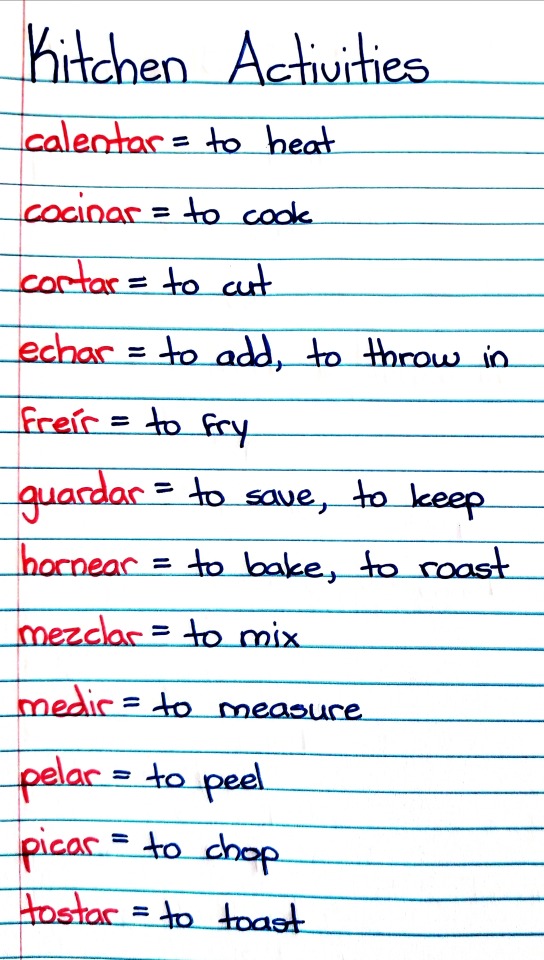 Kitchen Activities
calentar = to heat
cocinar = to cook
cortar = to cut
echar = to add, to throw in
freír = to fry
guardar = to save, to keep
hornear = to bake, to roast
mezclar = to mix
medir = to measure
pelar = to peel
picar = to chop
tostar = to toast